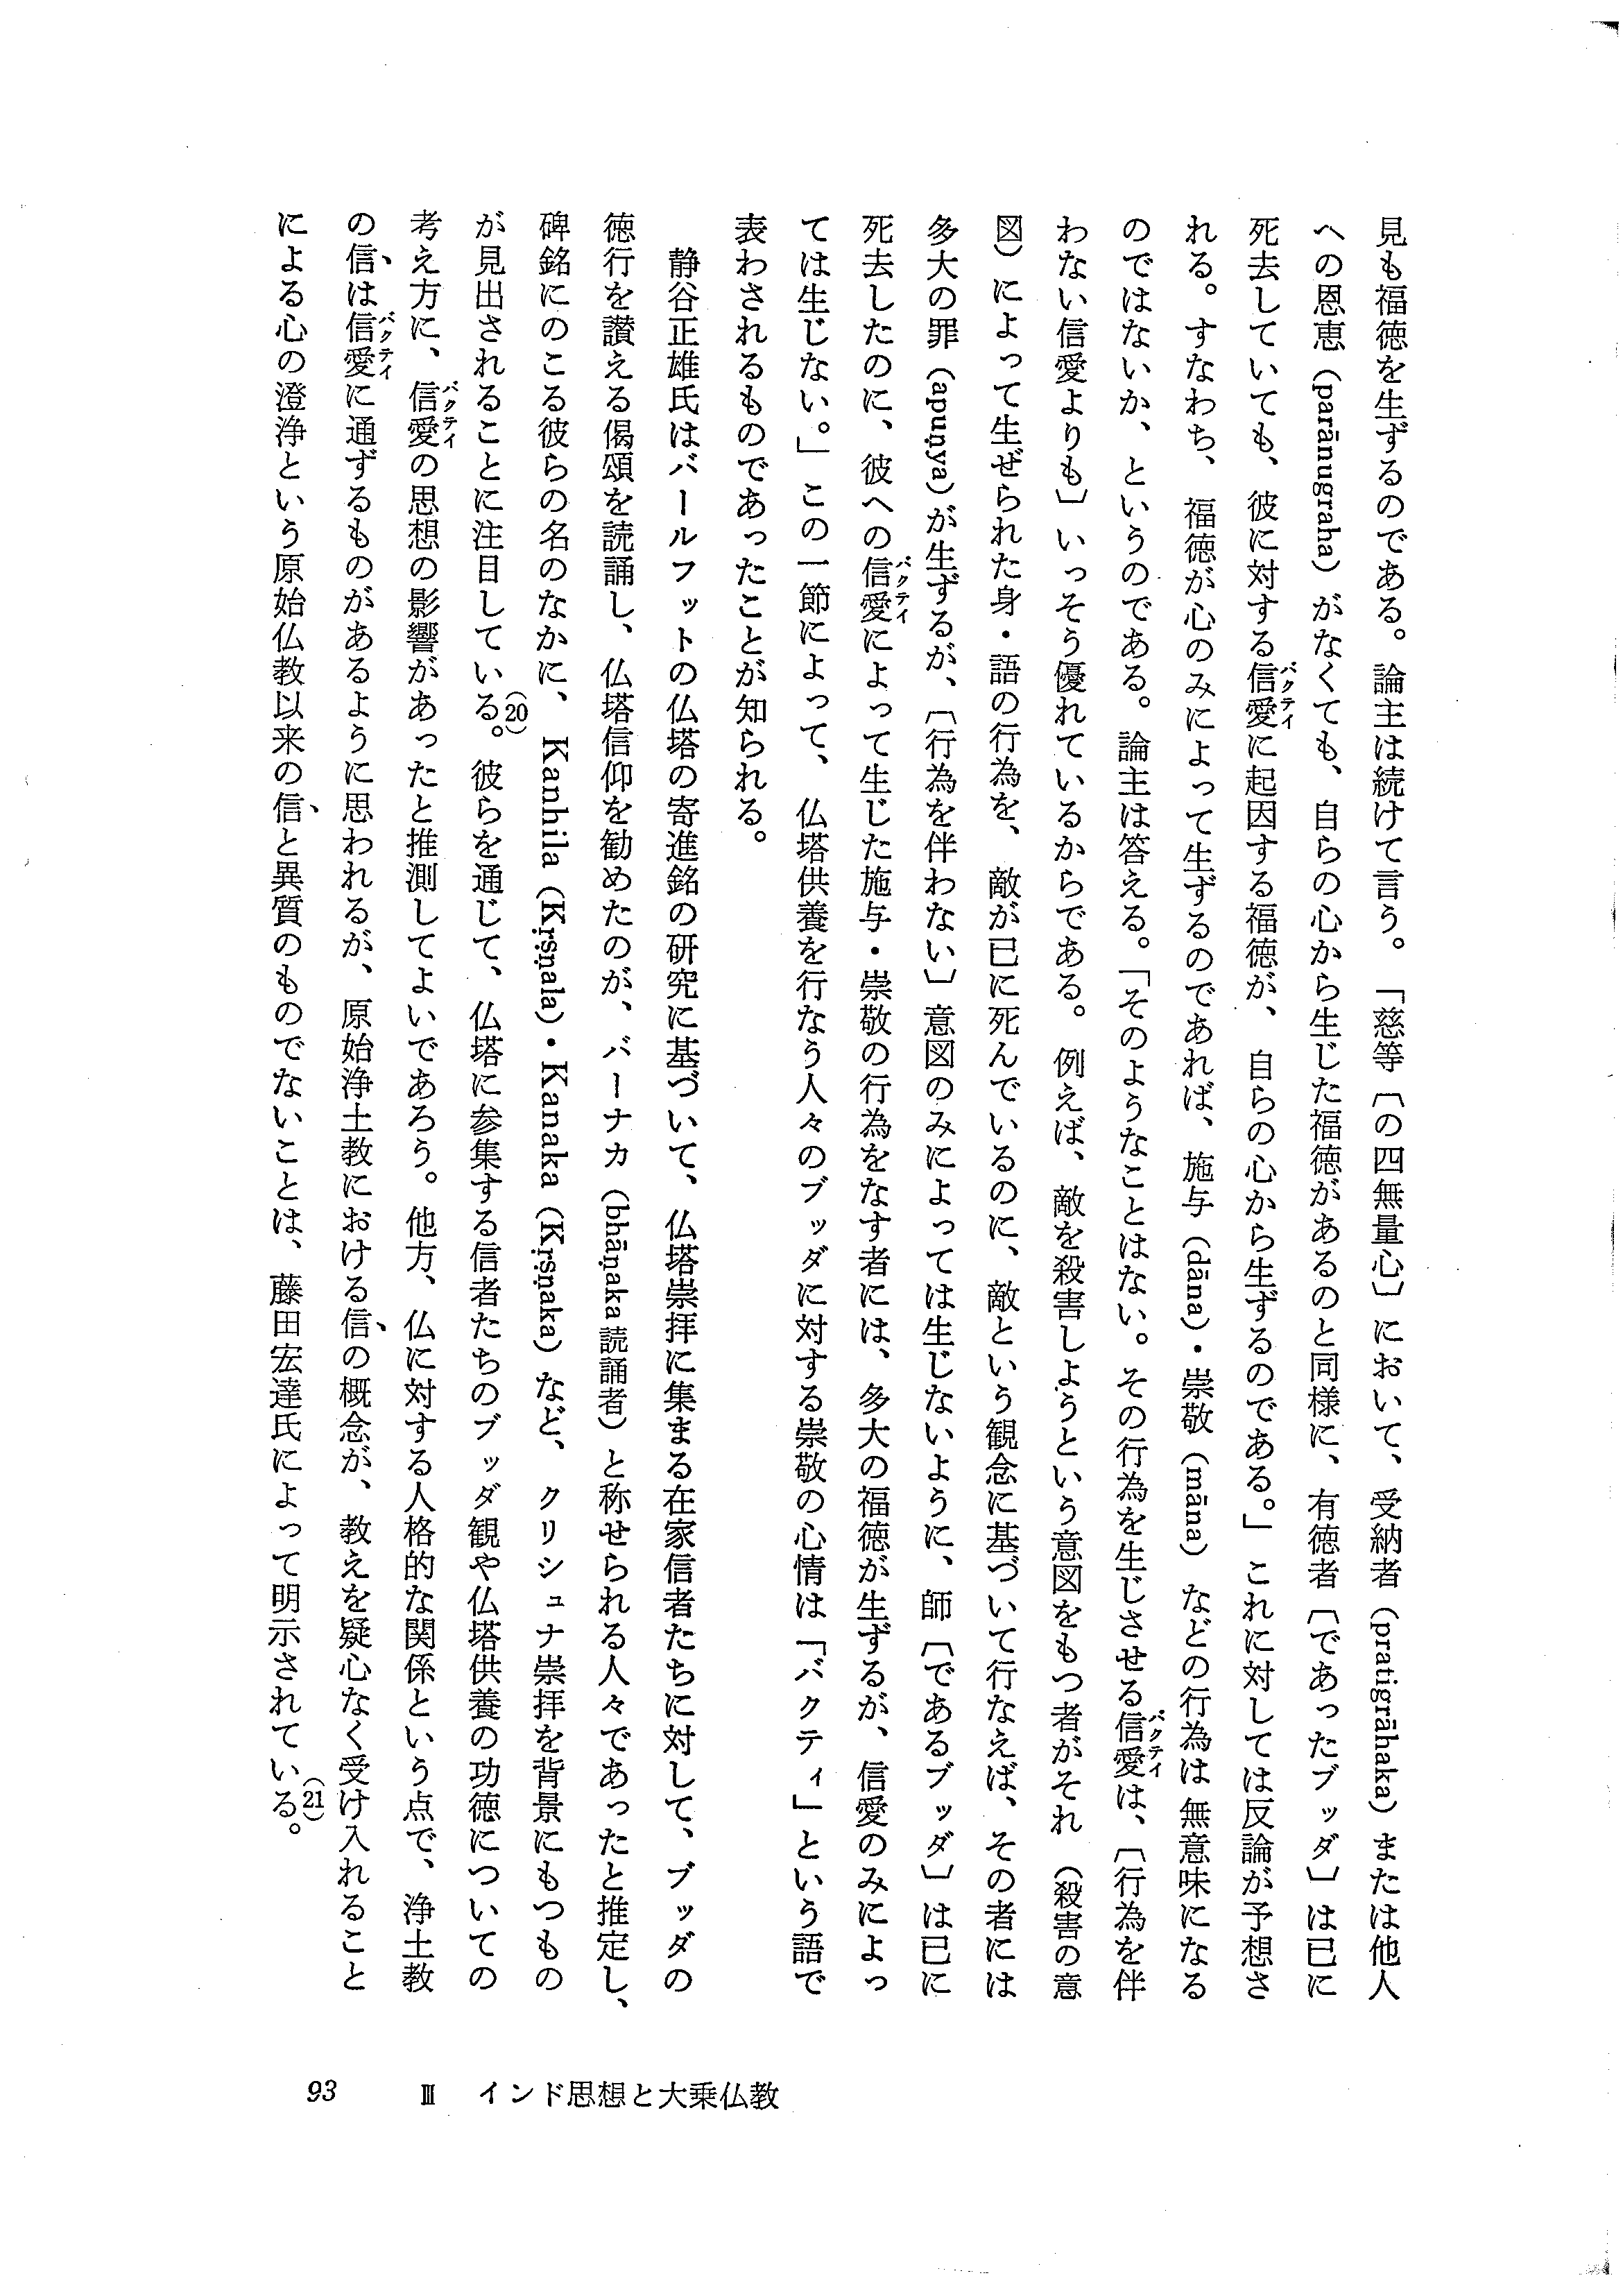 見も福徳を生ずるのである。論主は続けて言う。「慈等〔の四無量心〕において、受納者（pratigrāhaka）または他人
への恩恵（parānugraha）がなくても、自らの心から生じた福徳があるのと同様に、有徳者〔であったブッダ〕は已に
死去していても、彼に対する信愛バクティに起因する福徳が、自らの心から生ずるのである。」これに対しては反論が予想さ
れる。すなわち、福徳が心のみによって生ずるのであれば、施与（dāna）・崇敬（māna）などの行為は無意味になる
のではないか、というのである。論主は答える。「そのようなことはない。その行為を生じさせる信愛バクティは、〔行為を伴
わない信愛よりも〕いっそう優れているからである。例えば、敵を殺害しようという意図をもつ者がそれ（殺害の意
図）によって生ぜられた身・語の行為を、敵が已に死んでいるのに、敵という観念に基づいて行なえば、その者には
多大の罪（apuṇya）が生ずるが、〔行為を伴わない〕意図のみによっては生じないように、師〔であるブッダ〕は已に
死去したのに、彼への信愛バクティによって生じた施与・崇敬の行為をなす者には、多大の福徳が生ずるが、信愛のみによっ
ては生じない。」この一節によって、仏塔供養を行なう人々のブッダに対する崇敬の心情は「バクティ」という語で
表わされるものであったことが知られる。
静谷正雄氏はバールフットの仏塔の寄進銘の研究に基づいて、仏塔崇拝に集まる在家信者たちに対して、ブッダの
徳行を讃える偈頌を読誦し、仏塔信仰を勧めたのが、バーナカ（bhāṇaka 読誦者）と称せられる人々であったと推定し、
碑銘にのこる彼らの名のなかに、Kanhila（Kṛṣṇala）・Kanaka（Kṛṣṇaka）など、クリシュナ崇拝を背景にもつもの
が見出されることに注目している。（20）彼らを通じて、仏塔に参集する信者たちのブッダ観や仏塔供養の功徳についての
考え方に、信愛バクティの思想の影響があったと推測してよいであろう。他方、仏に対する人格的な関係という点で、浄土教
の信は信愛バクティに通ずるものがあるように思われるが、原始浄土教における信の概念が、教えを疑心なく受け入れること
による心の澄浄という原始仏教以来の信と異質のものでないことは、藤田宏達氏によって明示されている。（21）
93 Ⅲ インド思想と大乗仏教